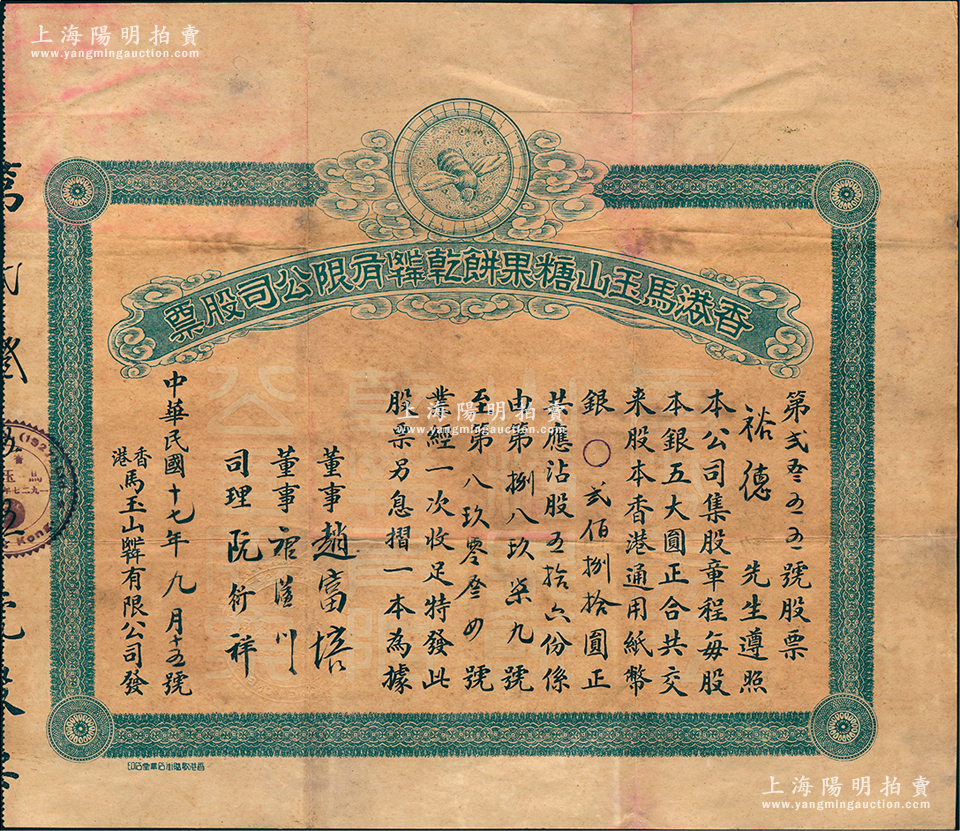 上海陽明拍賣
www.yangmingauction.com
香港馬玉山糖果餅乾有限公司股票
第弐叁五五號股票
裕德 先生遵照
本公司集股章程每股
本銀五大圓正合共交
来股本香港通用紙幣
銀〇弍佰捌拾圓正
共應沾股五拾六份係
由第捌八玖柒九號
至第八玖零叁四號
業經一次收足特發此
股票另息摺一本為據
董事趙富培
董事
司理阮衍祥
中華民國十七年九月十五號
香港馬玉山有限公司發
上海陽明拍賣
www.yangmingauction.com
上海陽明拍賣
www.yangmingauction.com